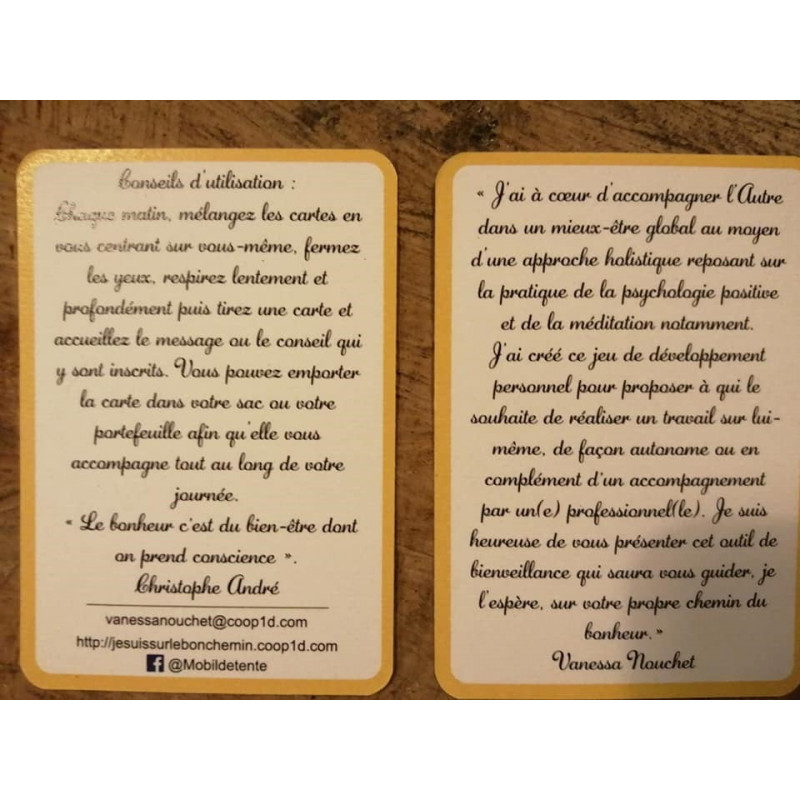 Conseils d'utilisation :
Chaque matin, mélangez les cartes en
vous centrant sur vous-même, fermez
les yeux, respirez lentement et
profondément puis tirez une carte et
accueillez le message ou le conseil qui
y sont inscrits. Vous pouvez emporter
la carte dans votre sac ou votre
portefeuille afin qu'elle vous
accompagne tout au long de votre
journée.
« Le bonheur c'est du bien-être dont
on prend conscience ».
Christophe André
vanessanouchet@coop1d.com
http://jesuissurlebonchemin.coop1d.com
@Mobildetente
« J'ai à cœur d'accompagner l'Autre
dans un mieux-être global au moyen
d'une approche holistique reposant sur
la pratique de la psychologie positive
et de la méditation notamment.
J'ai créé ce jeu de développement
personnel pour proposer à qui le
souhaite de réaliser un travail sur lui-
même, de façon autonome ou en
complément d'un accompagnement
par un(e) professionnel(le). Je suis
heureuse de vous présenter cet outil de
bienveillance qui saura vous guider, je
l'espère, sur votre propre chemin du
bonheur. »
Vanessa Nouchet